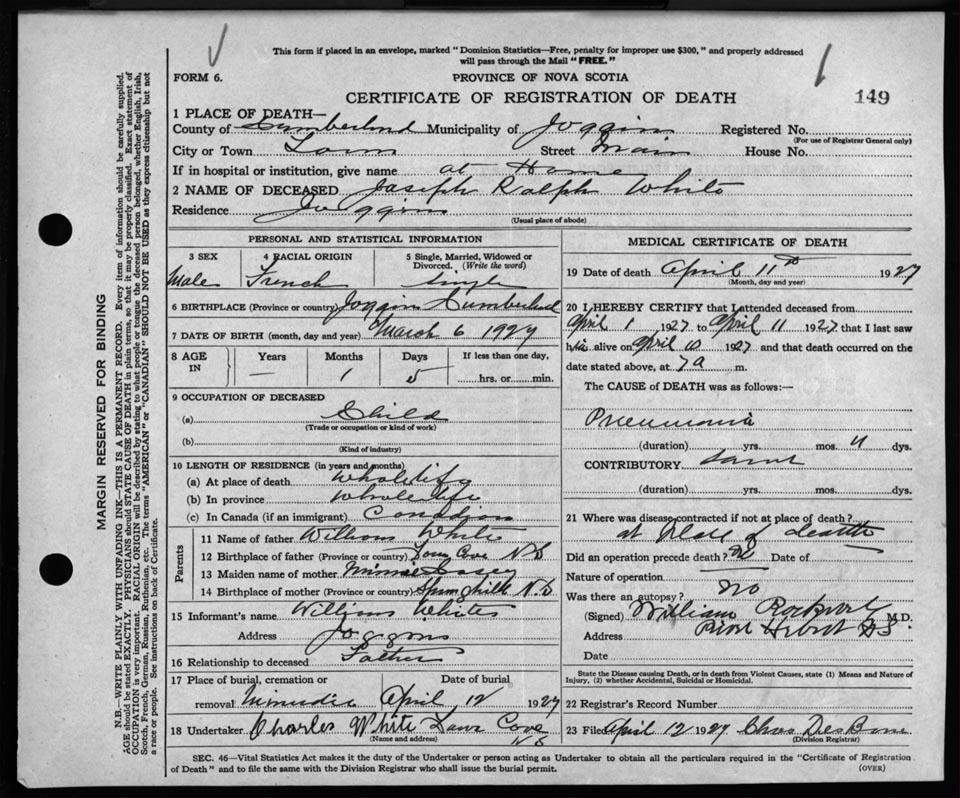 This form if placed in an envelope, marked "Dominion Statistics—Free, penalty for improper use $300," and properly addressed
will pass through the Mail "FREE."
FORM 6.
PROVINCE OF NOVA SCOTIA
CERTIFICATE OF REGISTRATION OF DEATH
149
1 PLACE OF DEATH—
County of Cumberland Municipality of Joggins Registered No.
(For use of Registrar General only)
City or Town Street Main House No.
If in hospital or institution, give name at Home
2 NAME OF DECEASED Joseph Ralph White
Residence Joggins
(Usual place of abode)
PERSONAL AND STATISTICAL INFORMATION
3 SEX
Male
4 RACIAL ORIGIN
French
5 Single, Married, Widowed or
Divorced. (Write the word)
Single
6 BIRTHPLACE (Province or country) Joggins Cumberland
7 DATE OF BIRTH (month, day and year) March 6 1927
8 AGE
IN
Years
—
Months
1
Days
5
If less than one day,
hrs. or min.
9 OCCUPATION OF DECEASED
(a) Child
(Trade or occupation or kind of work)
(b)
(Kind of industry)
10 LENGTH OF RESIDENCE (in years and months)
(a) At place of death whole life
(b) In province whole life
(c) In Canada (if an immigrant) Canadian
Parents
11 Name of father William White
12 Birthplace of father (Province or country) Cove N.S
13 Maiden name of mother Minnie Casey
14 Birthplace of mother (Province or country) Springhill N.S
15 Informant's name William White
Address Joggins
16 Relationship to deceased Father
17 Place of burial, cremation or
removal Minudie
Date of burial
April 12 1927
18 Undertaker Charles White Cove
(Name and address) N S
MEDICAL CERTIFICATE OF DEATH
19 Date of death April 11th 1927
(Month, day and year)
20 I HEREBY CERTIFY that I attended deceased from
April 1 1927 to April 11 1927 that I last saw
him alive on April 10 1927 and that death occurred on the
date stated above, at 7 a m.
The CAUSE of DEATH was as follows:—
Pneumonia
(duration) yrs. mos. dys.
CONTRIBUTORY same
(duration) yrs. mos. dys.
21 Where was disease contracted if not at place of death?
at place of death
Did an operation precede death? No Date of
Nature of operation
Was there an autopsy? no
(Signed) William Rockwell M.D.
Address River Hebert N S
Date
State the Disease causing Death, or in death from Violent Causes, state (1) Means and Nature of
Injury, (2) whether Accidental, Suicidal or Homicidal.
22 Registrar's Record Number
23 Filed April 12 1927 Chas
(Division Registrar)
SEC. 46—Vital Statistics Act makes it the duty of the Undertaker or person acting as Undertaker to obtain all the particulars required in the "Certificate of Registration
of Death" and to file the same with the Division Registrar who shall issue the burial permit.
(OVER)
MARGIN RESERVED FOR BINDING
N.B.—WRITE PLAINLY WITH UNFADING INK—THIS IS A PERMANENT RECORD. Every item of information should be carefully supplied.
AGE should be stated EXACTLY. PHYSICIANS should STATE CAUSE OF DEATH in plain terms, so that it may be properly classified. Exact statement of
OCCUPATION is very important. RACIAL ORIGIN will be described by stating to what people or tongue the deceased person belonged, whether English, Irish,
Scotch, French, German, Russian, Ruthenian, etc. The terms "AMERICAN" or "CANADIAN" SHOULD NOT BE USED as they express citizenship but not
a race or people. See instructions on back of Certificate.